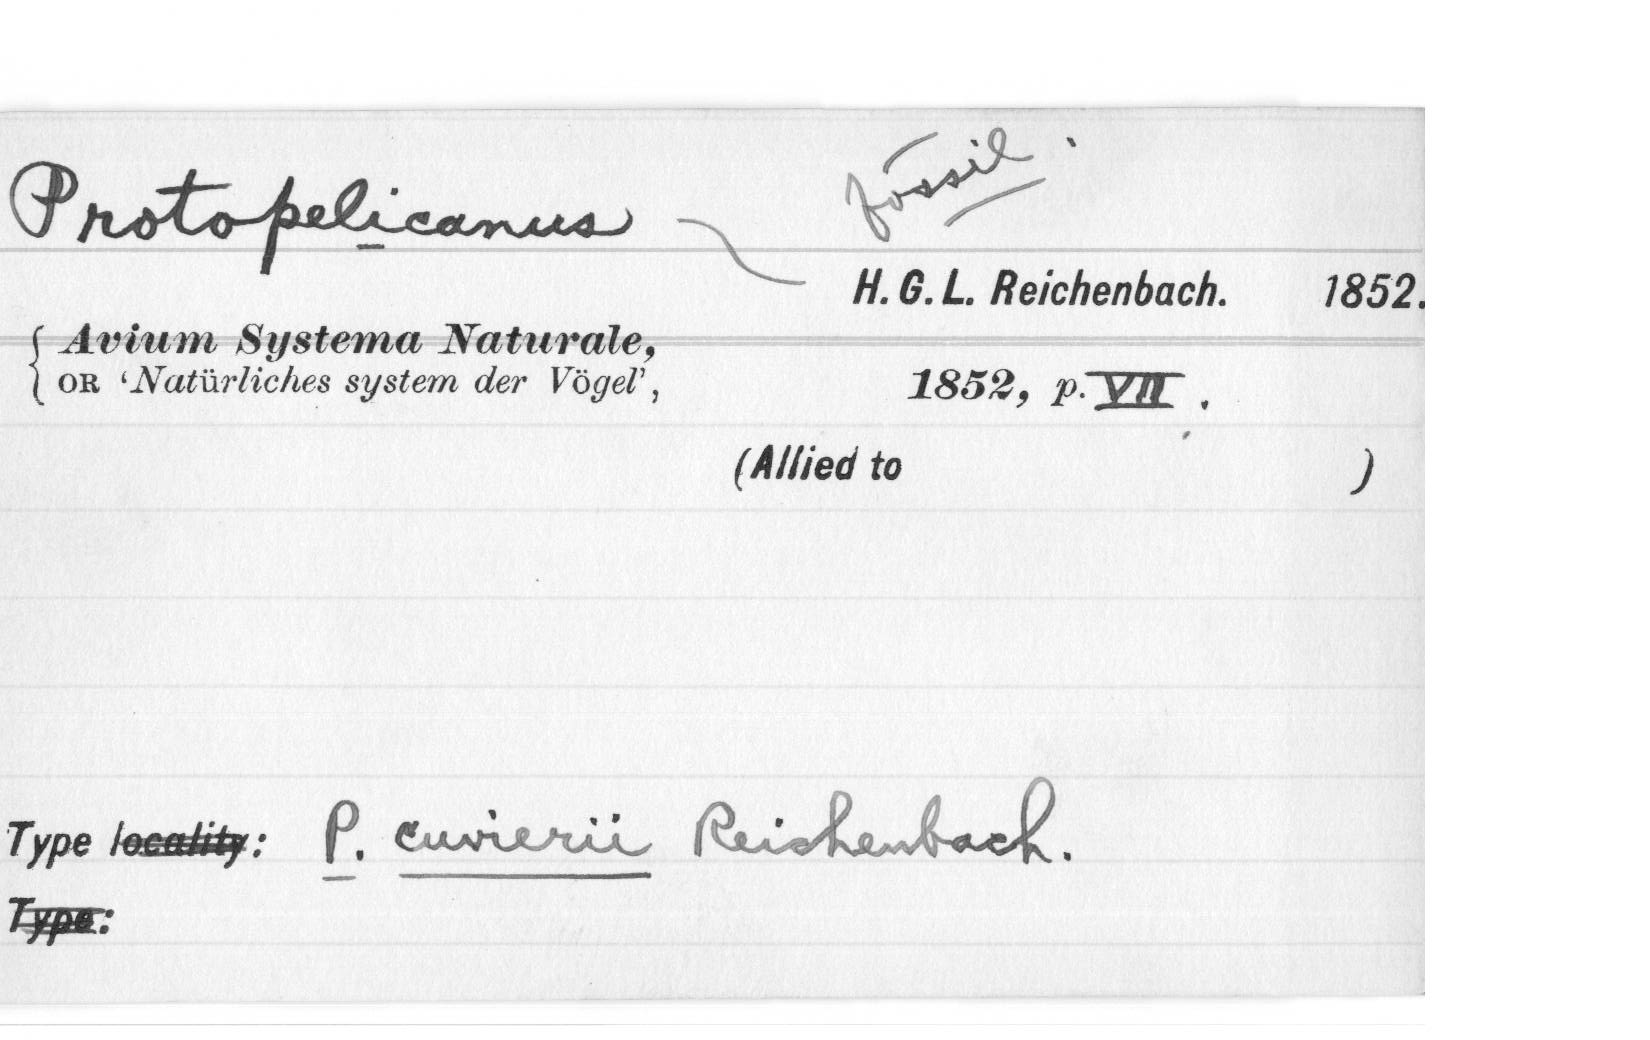 fossil.
Protopelicanus
H. G. L. Reichenbach. 1852.
Avium Systema Naturale,
OR ‘Natürliches system der Vögel’, 1852, p. VII.
(Allied to )
Type locality: P. cuvierii Reichenbach.
Type: